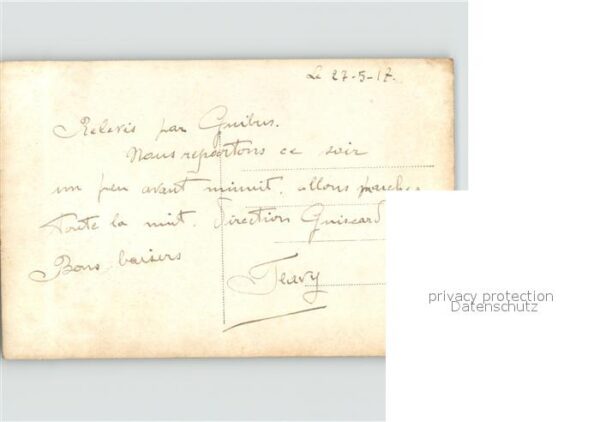 Le 27-5-17.
Relevés par Guibus.
Nous repartons ce soir
un peu avant minuit. allons
Toute la nuit. Direction Guiscard
Bons baisers
privacy protection
Datenschutz